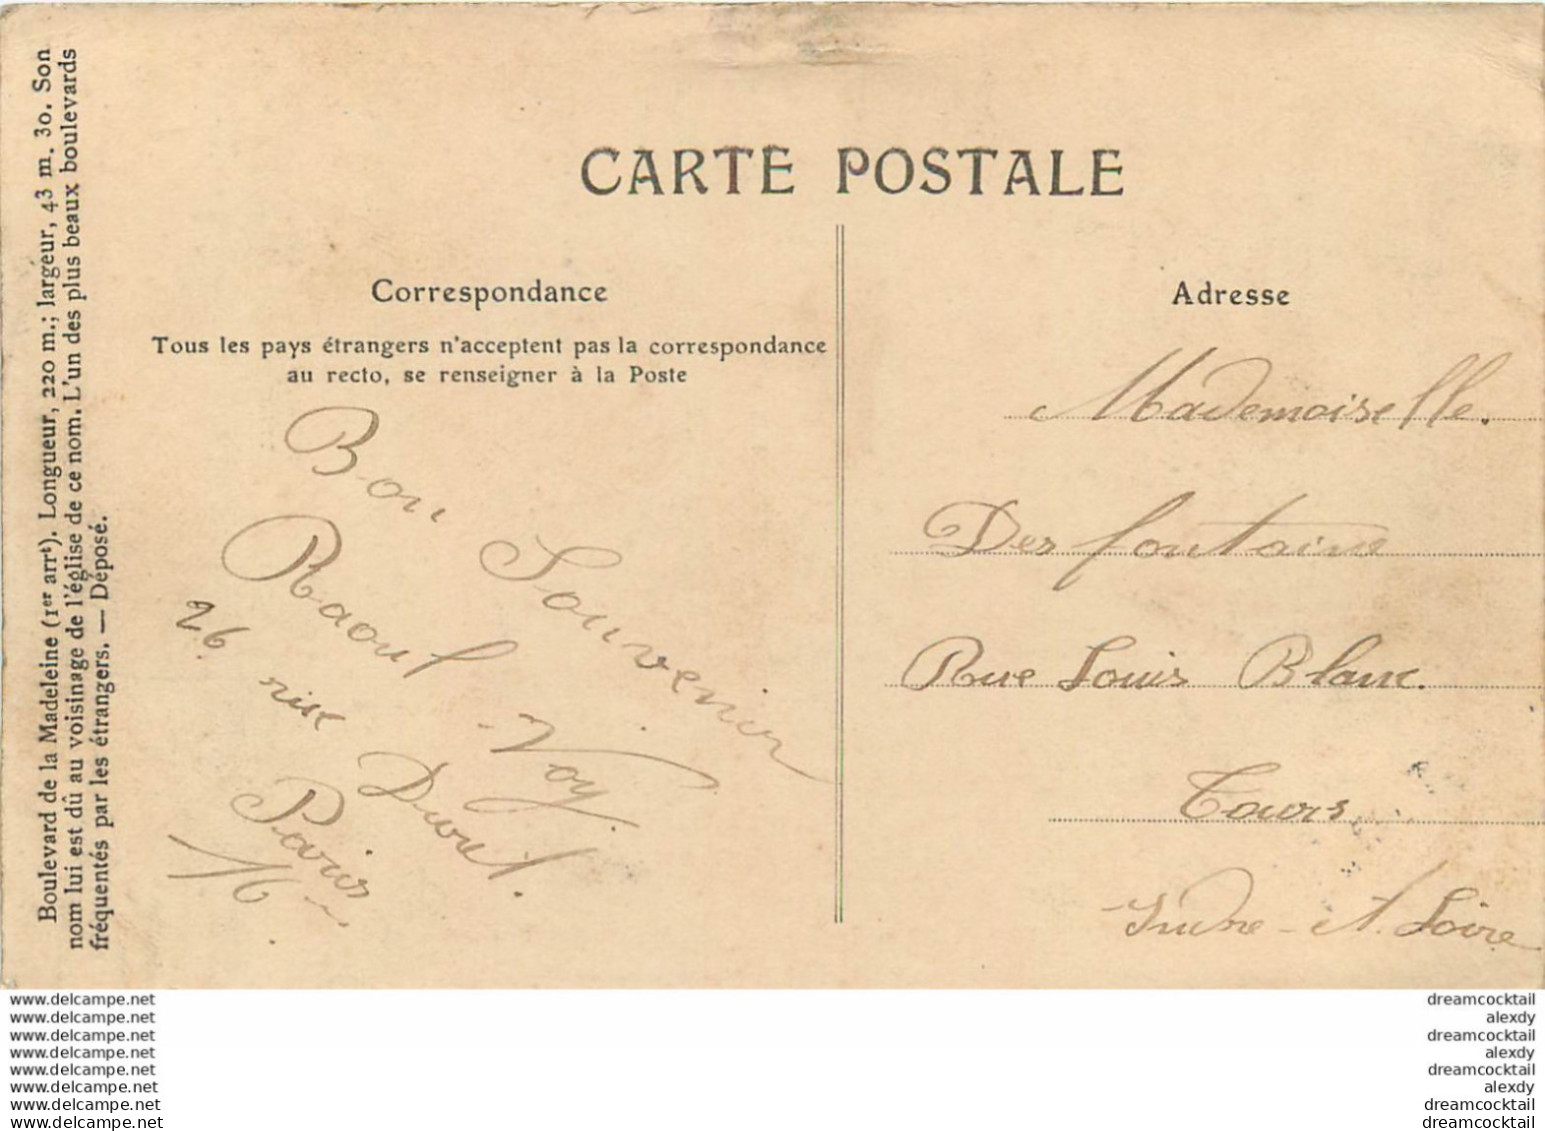 CARTE POSTALE
Boulevard de la Madeleine (1er arrt). Longueur, 220 m.; largeur, 43 m. 30. Son
nom lui est dû au voisinage de l'église de ce nom. L'un des plus beaux boulevards
fréquentés par les étrangers. — Déposé.
Correspondance
Tous les pays étrangers n'acceptent pas la correspondance
au recto, se renseigner à la Poste
Bon Souvenir
Raoul Voy
26 rue
Paris
Adresse
Mademoiselle.
Desfontaine
Rue Louis Blanc.
Tours
Indre-et-Loire
www.delcampe.net
www.delcampe.net
www.delcampe.net
www.delcampe.net
www.delcampe.net
www.delcampe.net
www.delcampe.net
www.delcampe.net
dreamcocktail
alexdy
dreamcocktail
alexdy
dreamcocktail
alexdy
dreamcocktail
dreamcocktail